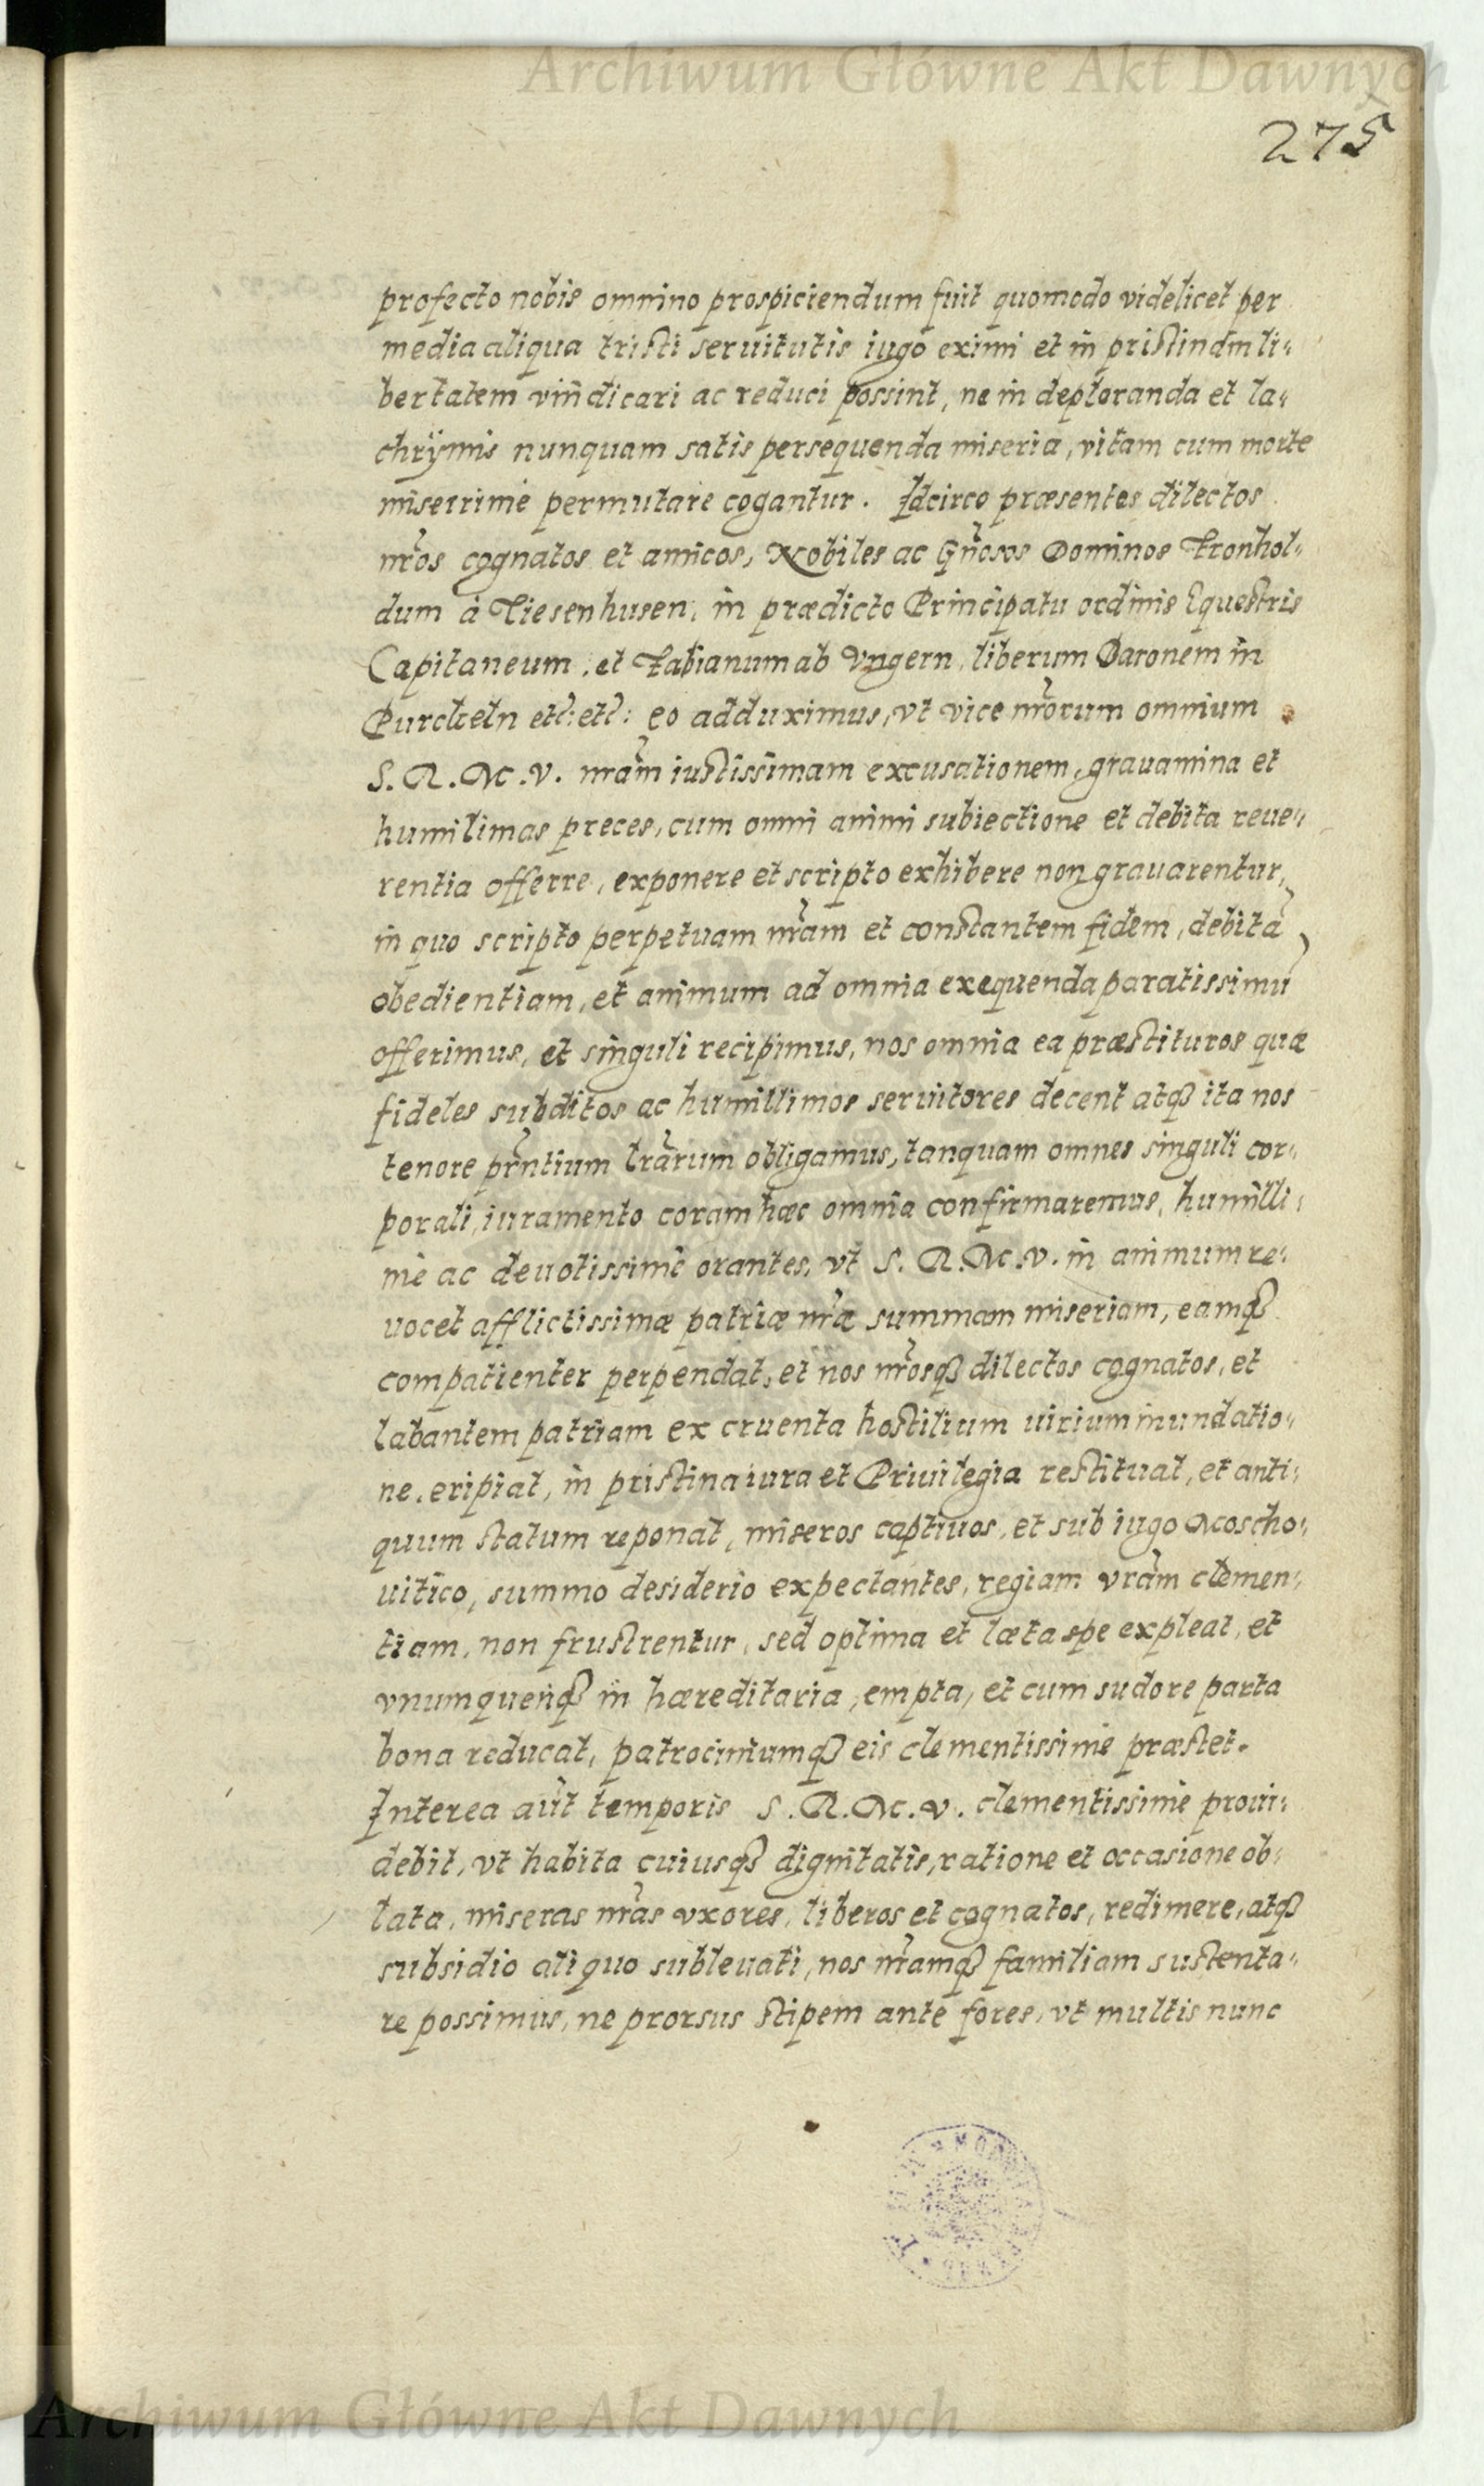 Archiwum Główne Akt Dawnych
275
profecto nobis omnino prospiciendum fuit quomodo videlicet per
media aliqua tristi seruitutis iugo eximi et in pristinam li=
bertatem vindicari ac reduci possint, ne in deploranda et la=
chrÿmis nunquam satis persequenda miseria, vitam cum morte
miserrime permutare cogantur. Idcirco præsentes dilectos
nr̃os cognatos et amicos, Nobiles ac Gñosos Dominos Fronhol=
dum à Tiesenhusen, in prædicto Principatu ordinis Equestris
Capitaneum, et Fabianum ab Vngern, liberum Baronem in
Purckeln etc: etc: eo adduximus, vt vice nr̃orum omnium
S. R. M. V. nr̃am iustissimam excusationem, grauamina et
humilimas preces, cum omni animi subiectione et debita reue=
rentia offerre, exponere et scripto exhibere non grauarentur,
in quo scripto perpetuam nr̃am et constantem fidem, debitã
obedientiam, et animum ad omnia exequenda paratissimũ
offerimus, et singuli recipimus, nos omnia ea præstituros quæ
fideles subditos ac humillimos seruitores decent atq3 ita nos
tenore pr̃ntium lr̃arum obligamus, tanquam omnes singuli cor=
porali iuramento coram hæc omnia confirmaremus, humilli=
me ac deuotissimè orantes, vt S. R. M. V. in animum re=
uocet afflictissimæ patriæ nr̃æ summam miseriam, eamq3
compatienter perpendat, et nos nr̃osq3 dilectos cognatos, et
labantem patriam ex cruenta hostilium uirium inundatio=
ne, eripiat, in pristina iura et Priuilegia restituat, et anti=
quum statum reponat, miseros captiuos, et sub iugo Moscho=
uitico, summo desiderio expectantes, regiam vr̃am clemen=
tiam, non frustrentur, sed optima et læta spe expleat, et
vnumquenq3 in hæreditaria, empta, et cum sudore parta
bona reducat, patrociniumq3 eis clementissimè præstet.
Interea aũt temporis S. R. M. V. clementissimè proui=
debit, vt habita cuiusq3 dignitatis, ratione et occasione ob=
lata, miseras nr̃as vxores, liberos et cognatos, redimere, atq3
subsidio aliquo subleuati, nos nr̃amq3 familiam sustenta=
re possimus, ne prorsus stipem ante fores, vt multis nunc
Archiwum Główne Akt Dawnych